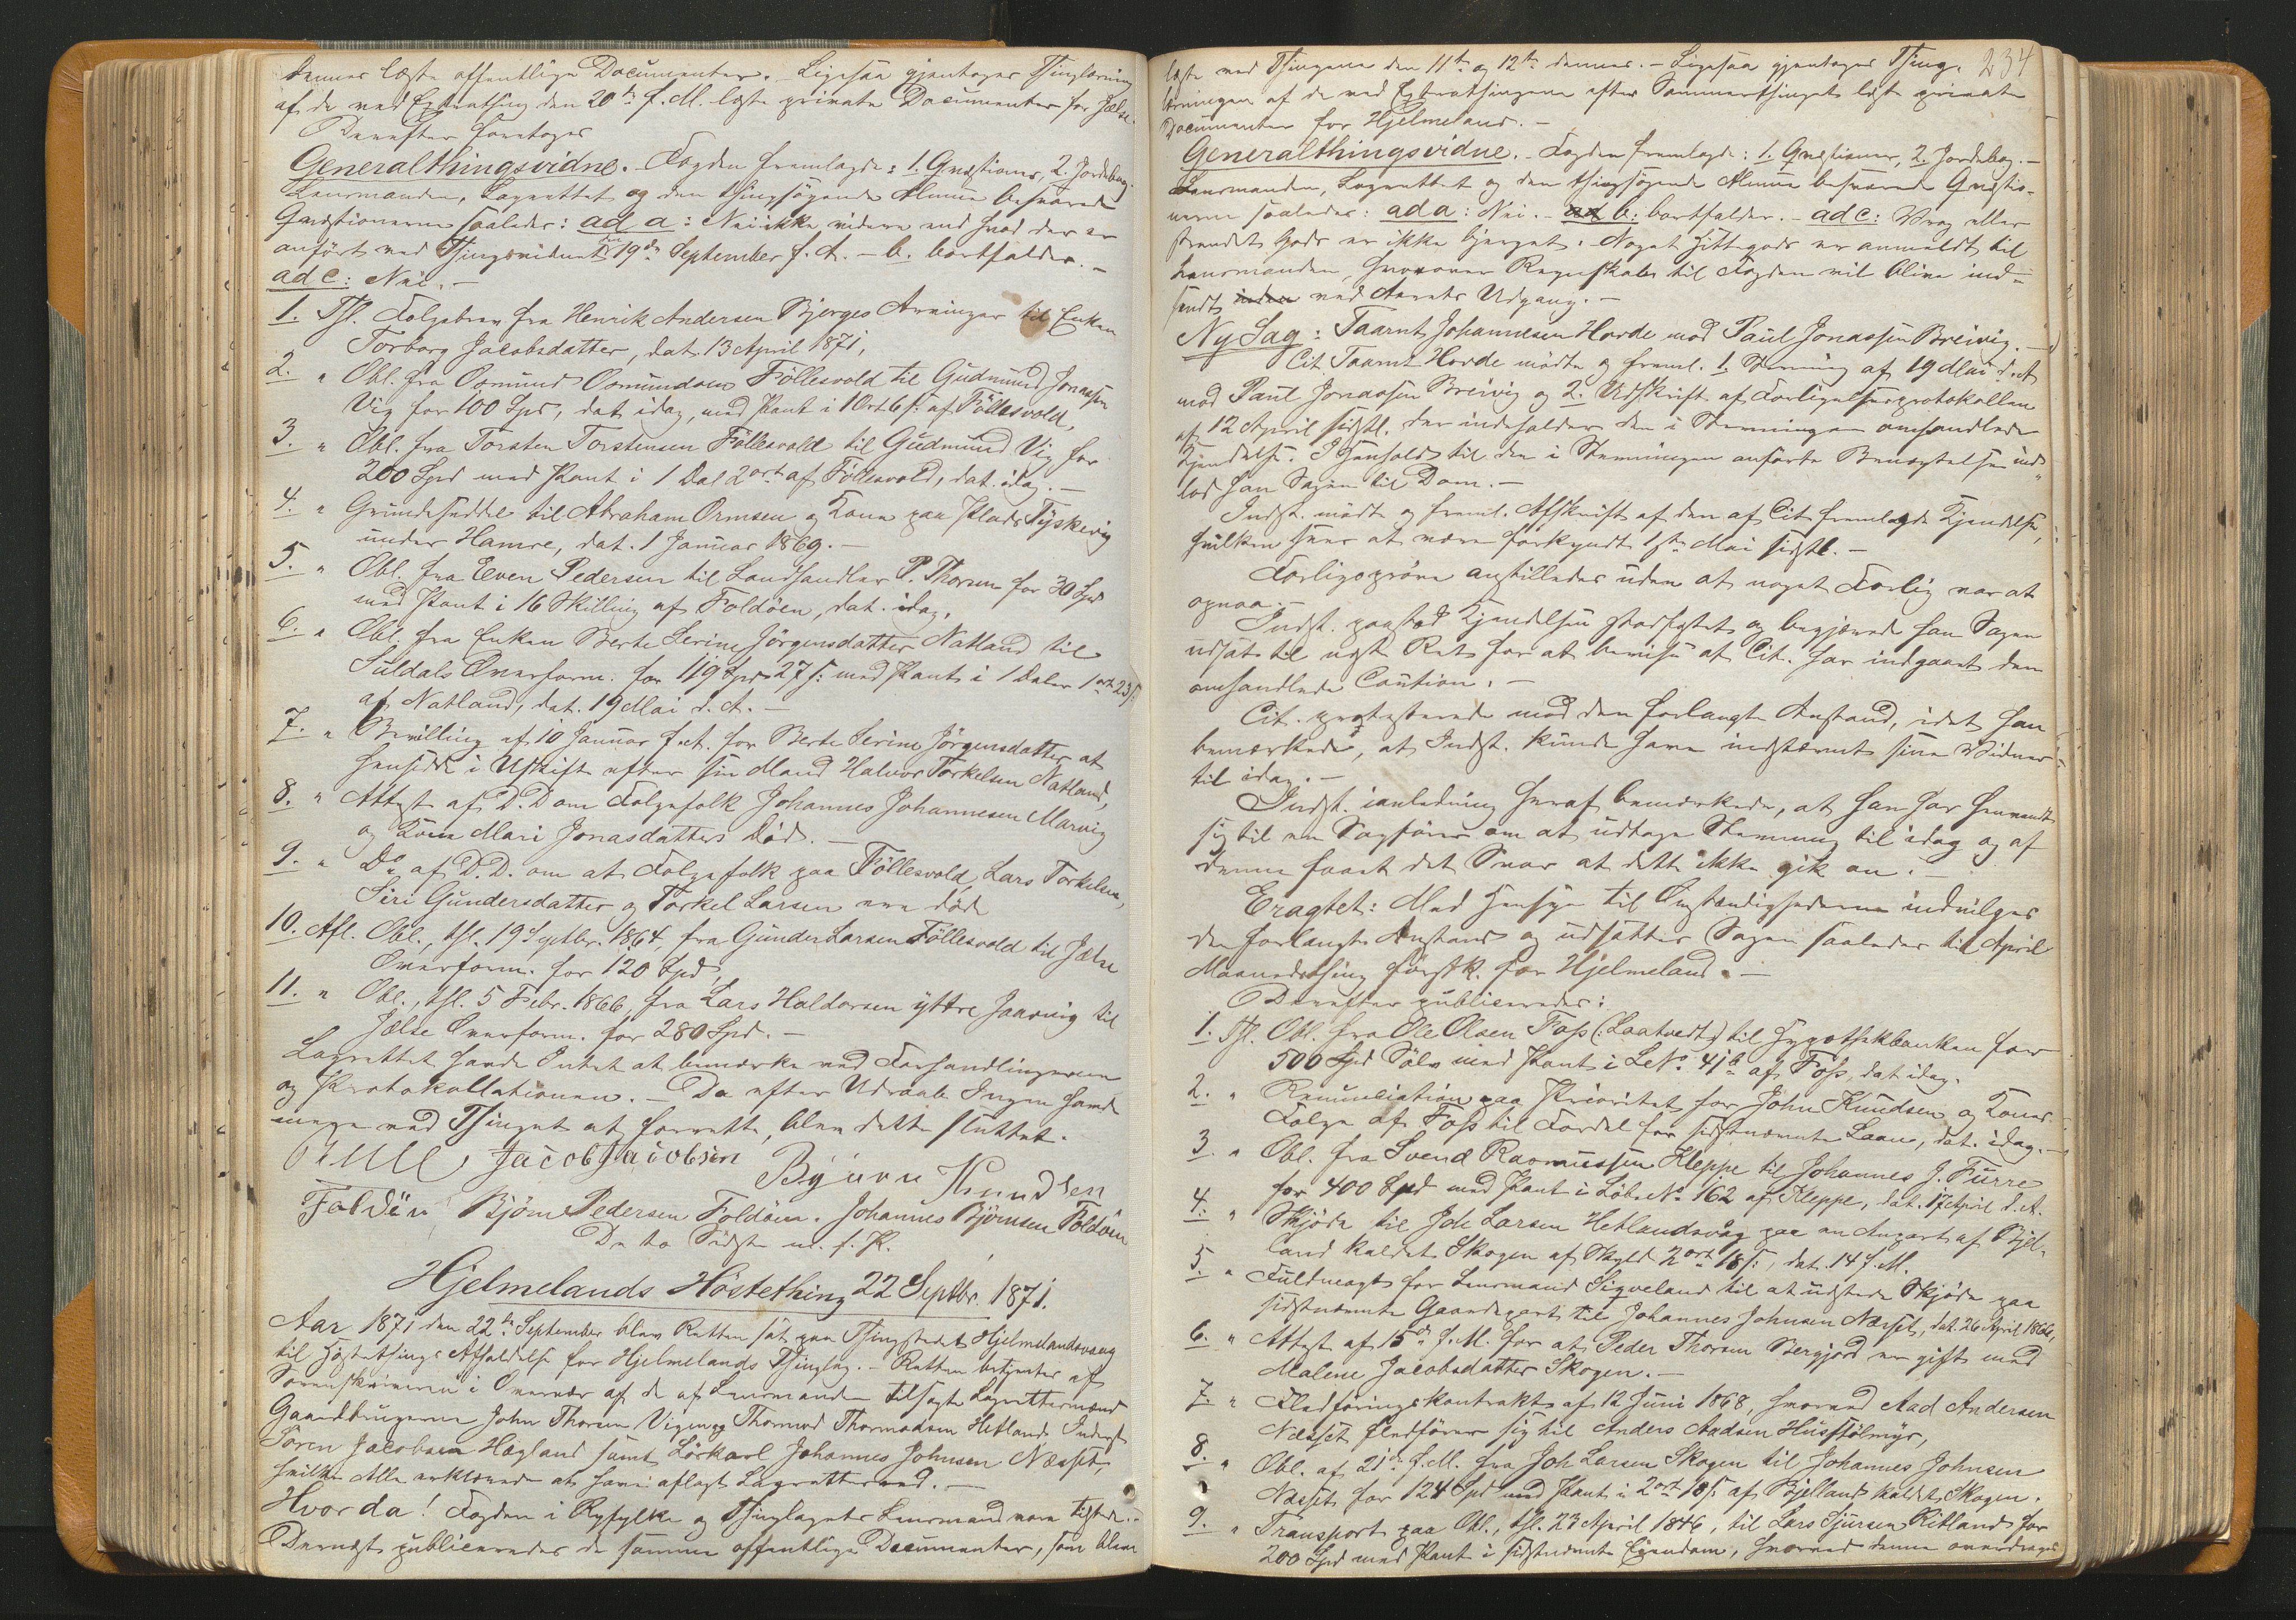 dennes læste offentlige Documenter. – Ligesaa gjentoges Thinglæsning
af de ved Extrathing den 20de f. M. læste private Documenter for Jælse.
Derefter foretoges
Generalthingsvidne. – Fogden fremlagde: 1. Qvæstioner, 2. Jordebog.
Lensmanden, Lagrettet og den thingsøgende Almue besvarede
Qvæstionerne saaledes: ad a: Nei ikke videre end hvad der er
anført ved Thingsvidnet 19de September f. A. – b. bortfalder. –
ad c: Nei. –
1. Thl. Folgebrev fra Henrik Andersen Bjerges Arvinger til Enken
Torborg Jacobsdatter, dat. 13 April 1871,
2. " Obl. fra Osmund Osmundsen Föllesvold til Gudmund Jonassen
Vig for 100 Spd, dat. idag, med Pant i 1 Ort 6 s. af Föllesvold,
3. " Obl. fra Torsten Torstensen Föllesvold til Gudmund Vig for
200 Spd med Pant i 1 Dal 2 ort af Föllesvold, dat. idag. –
4. " Grundseddel til Abraham Ormsen og Kone paa Plads Tyskevig
under Hamre, dat. 1 Januar 1869. –
5. " Obl. fra Even Pedersen til Landhandler P. Thorsen for 30 Spd
med Pant i 16 Skilling af Foldöen, dat. idag.
6. " Obl. fra Enken Berte Serine Jörgensdatter Natland til
Suldals Overform. for 119 Spd 27 s. med Pant i 1 Daler 1 ort 23 s.
af Natland, dat. 19 Mai d. A. –
7. " Bevilling af 10 Januar f. A. for Berte Serine Jörgensdatter at
hensidde i Uskift efter sin Mand Halvor Torkelsen Natland,
8. " Attest af D. D. om Folgefolk Johannes Johannesen Marvig
og Kone Mari Jonasdatters Död. –
9. " Do af D. D. om at Folgefolk paa Föllesvold, Lars Torkelsen,
Siri Gundersdatter og Torkel Larsen ere döde
10. Afl. Obl., thl. 19 Septbr. 1864, fra Gunder Larsen Föllesvold til Jælse
Overform. for 120 Spd,
11. " Obl., thl. 5 Febr. 1866, fra Lars Haldorsen yttre Jaavig til
Jælse Overform. for 280 Spd. –
Lagrettet havde Intet at bemærke ved Forhandlingerne
og Protokollationen. – Da efter Udraab Ingen havde
mere ved Thinget at forrette, blev dette sluttet.
Jacob Jacobsen Bjørn Knudsen
Foldöen Björn Pedersen Foldöen. Johannes Björnsen Foldöen
De to Sidste m. f. P.
Hjelmelands Höstething 22 Septbr. 1871.
Aar 1871 den 22de September blev Retten sat paa Thingstedet Hjelmelandsvaag
til Høstethings Afholdelse for Hjelmelands Thinglag. – Retten betjentes af
Sorenskriveren i Overvær af de af Lensmanden tilsagte Lagrettesmænd
Gaardbrugerne John Thorsen Vigen og Thormod Thormodsen Hetland, Inderst
Sören Jacobsen Hægland samt Löskarl Johannes Johnsen Næsset,
hvilke Alle erklærede at have aflagt Lagretteseed. –
Hvorda! Fogden i Ryfylke og Thinglagets Lensmand vare tilstede. –
Dernæst publiceredes de samme offentlige Documenter, som bleve
234
læste ved Thingene den 11te og 12te dennes. – Ligesaa gjentoges Thing-
læsningen af de ved Extrathingene efter Sommerthinget læste private
Documenter for Hjelmeland. –
Generalthingsvidne. – Fogden fremlagde: 1. Qvæstioner, 2. Jordebog. –
Lensmanden, Lagrettet og den thingsøgende Almue besvarede Qvæstio-
nerne saaledes: ad a: Nei. – ad b: bortfalder. – ad c: Vrag eller
strandet Gods er ikke bjerget. Noget Hittegods er anmeldt til
Lensmanden, hvorover Regnskab til Fogden vil blive ind-
sendt inden ved Aarets Udgang. –
Ny Sag: Taarnt Johannesen Horde mod Paul Jonassen Breivig. –
Cit. Taarnt Horde mödte og freml. 1. Stevning af 19 Mai d. A.
mod Paul Jonassen Breivig og 2. Udskrift af Forligelsesprotokollen
af 12 April sidstl. der indeholder den i Stevningen omhandlede
Kjendelse. I Henhold til den i Stevningen anførte Benægtelse ind-
lod han Sagen til Dom. –
Indst. mödte og freml. Afskrift af den af Cit. fremlagde Kjendelse,
hvilken sees at være forkyndt 1ste Mai sidstl. –
Forligsprøve anstilledes uden at noget Forlig var at
opnaa. –
Indst. paastod Kjendelsen stadfæstet og begjærede han Sagen
udsat til næste Ret for at bevise at Cit. har indgaaet den
omhandlede Caution. –
Cit. protesterede mod den forlangte Anstand, idet han
bemærkede, at Indst. kunde have indstævnet sine Vidner
til idag. –
Indst. i anledning heraf bemærkede, at han har henvendt
sig til en Sagfører om at udtage Stevning til idag og af
denne faaet det Svar at dette ikke gik an. –
Eragtet: Med Hensyn til Omstændighederne indvilges
den forlangte Anstand og udsættes Sagen saaledes til April
Maanedsthing førstk. for Hjelmeland. –
Derefter publiceredes:
1. Thl. Obl. fra Ole Olsen Foss (: Laatvedt :) til Hypothekbanken for
500 Spd Sölv med Pant i Lb. No 41b af Foss, dat. idag.
2. " Renunciation paa Prioritet for John Knudsen og Kones
Folge af Foss til Fordel for sidstnævnte Laan, dat. idag. –
3. " Obl. fra Svend Rasmussen Kleppe til Johannes J. Furre
for 400 Spd med Pant i Löb. No 162 af Kleppe, dat. 17 April d. A.
4. " Skjöde til Joh. Larsen Hetlandsvåg paa en Anpart af Bjel-
land kaldet Skogen af Skyld 2 ort 18 s., dat. 14 f. M.
5. " Fuldmagt for Lensmand Sigveland til at udstede Skjöde paa
sidstnævnte Gaardepart til Johannes Johnsen Næsset, dat. 26 April 1866,
6. " Attest af 15de f. M. for at Peder Thorsen Bergjord er gift med
Malene Jacobsdatter Skogen. –
7. " Fledføringskontrakt af 12 Juni 1868, hvorved Aad Andersen
Næsset fledfører sig til Anders Aadsen Husstölmyr,
8. " Obl. af 21de f. M. fra Joh. Larsen Skogen til Johannes Johnsen
Næsset for 124 Spd med Pant i 2 ort 18 s. af Bjelland kaldet Skogen.
9. " Transport paa Obl., thl. 23 April 1846, til Lars Sjursen Ritland for
200 Spd med Pant i sidstnævnte Eiendom, hvorved denne overdrages